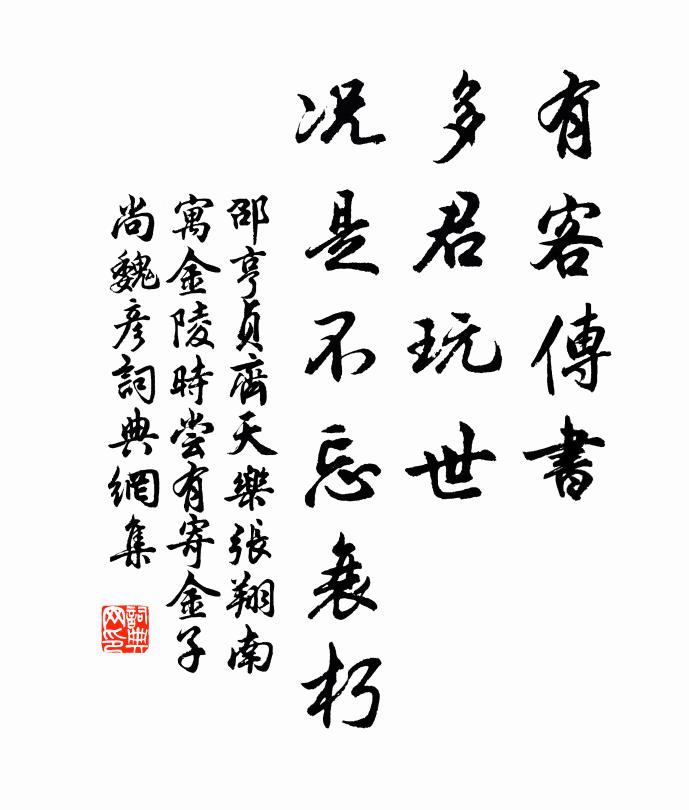 有客傳書
多君玩世
况是不忘衰朽
邵亨貞齊天樂張翔南
寓金陵時尝有寄金子
尚魏彦詞典網集
詞典
网印